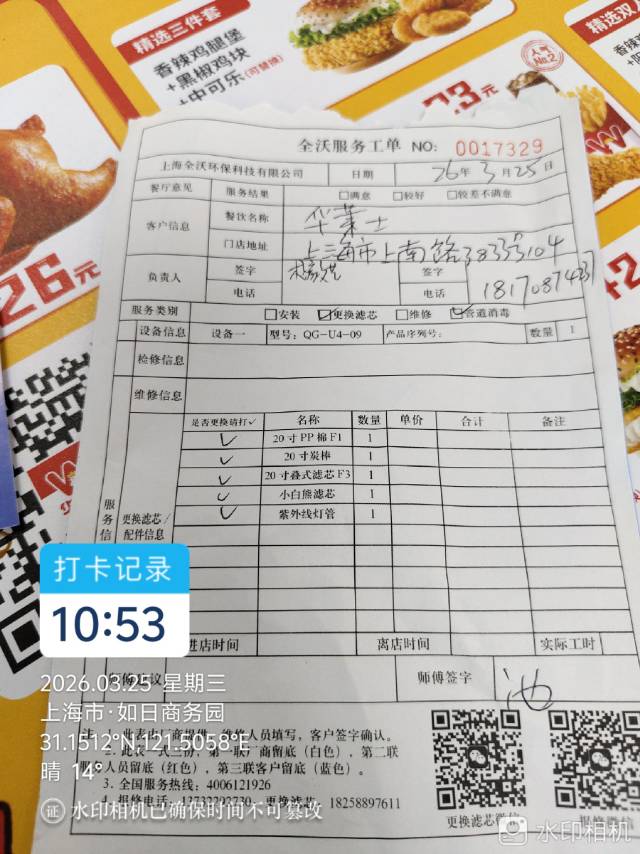 精选三件套
香辣鸡腿堡
+黑椒鸡块
+中可乐(可替换)
人气
No.2
精选双
香辣
26元
全沃服务工单 NO: 0017329
上海全沃环保科技有限公司 日期 26年3月25日
餐厅意见 服务结果 □满意 □较好 □较差不满意
客户信息 餐饮名称 华莱士
门店地址 上海市上南路3833号104
负责人 签字 签字
电话 电话
服务类别 □安装 ☑更换滤芯 □维修 ☑管道消毒
设备信息 设备一 型号: QG-U4-09 产品序列号: 数量 1
检修信息
维修信息
服务信
更换滤芯/
配件信息
是否更换请打✓ 名称 数量 单价 合计 备注
✓ 20寸PP棉F1 1
✓ 20寸炭棒 1
✓ 20寸叠式滤芯F3 1
✓ 小白熊滤芯 1
✓ 紫外线灯管 1
进店时间 离店时间 实际工时
师傅签字
打卡记录
10:53
2026.03.25 星期三
上海市·如日商务园
31.1512°N,121.5058°E
晴 14°
人员填写，客户签字确认。
厂商留底（白色），第二联
人员留底（红色），第三联客户留底（蓝色）。
3. 全国服务热线: 4006121926
更换滤芯: 18258897611
更换滤芯微信
报修微信
证 水印相机已确保时间不可篡改
水印相机